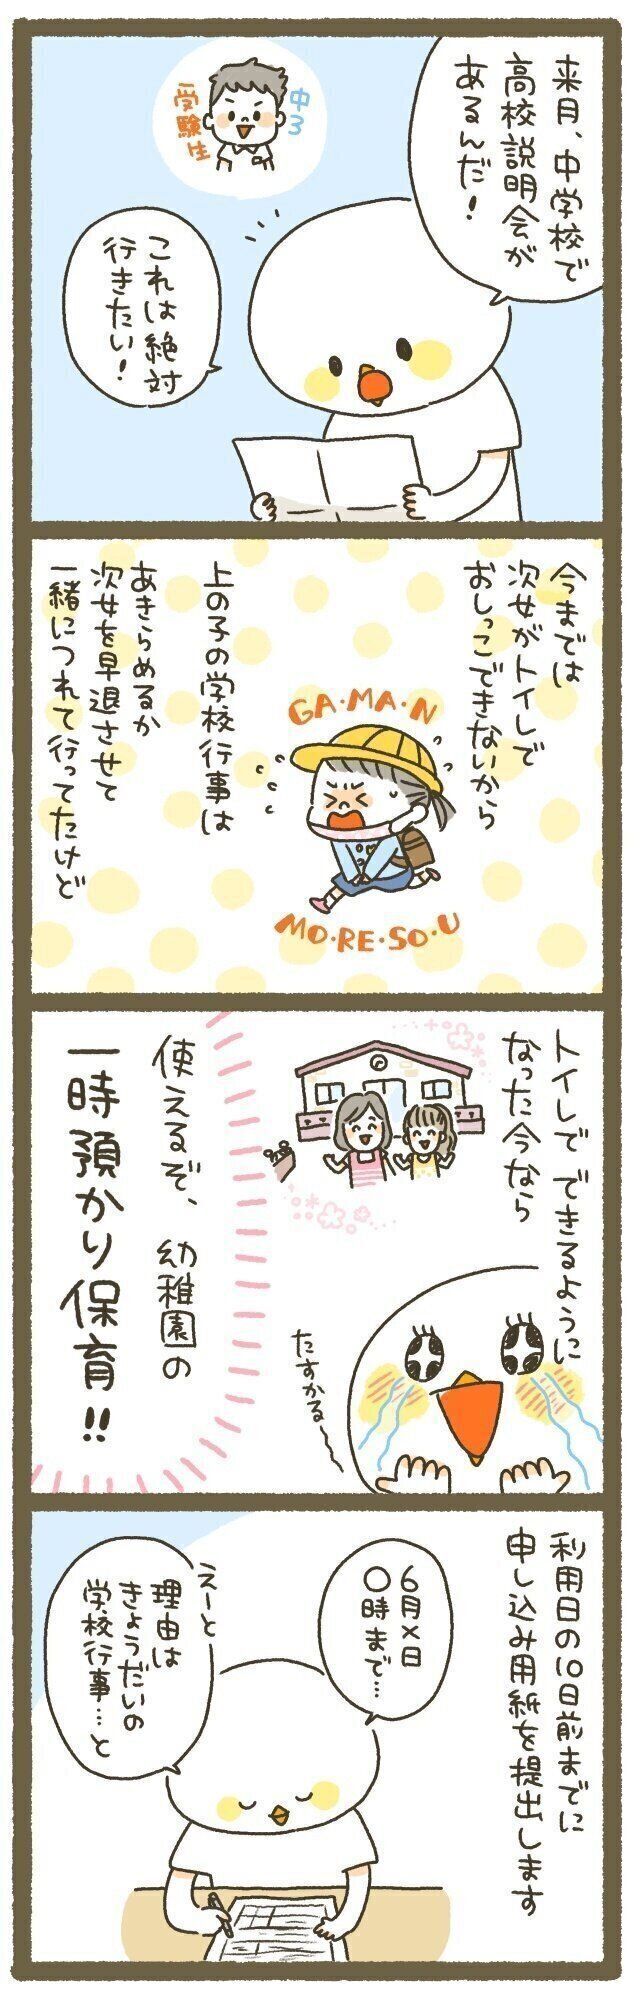 来月、中学校で
高校説明会が
あるんだ!
中3
受験生
これは絶対
行きたい!
今までは
次女がトイレで
おしっこできないから
上の子の学校行事は
あきらめるか
次女を早退させて
一緒につれて行ってたけど
GA・MA・N
MO・RE・SO・U
トイレでできるように
なった今なら
使えるぞ、幼稚園の
一時預かり保育!!
たすかる〜
利用日の10日前までに
申し込み用紙を提出します
6月×日
〇時まで…
えーと
理由は
きょうだいの
学校行事…と